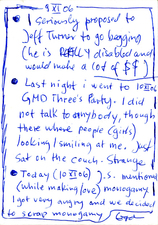 9 XI 06
• I seriously proposed to
Jeff Turner to go begging
(he is REALLY disabled and
would make a lot of $$)
• Last night i went to 10 XI 06
GMD Three's Party. I did
not talk to anybody, though
there where people (girls)
looking/smiling at me. Just
sat on the couch. Strange!
• Today (10 XI 06) J.S. mentioned
(while making love) monogamy
I got very angry and we decided
to scrap monogamy